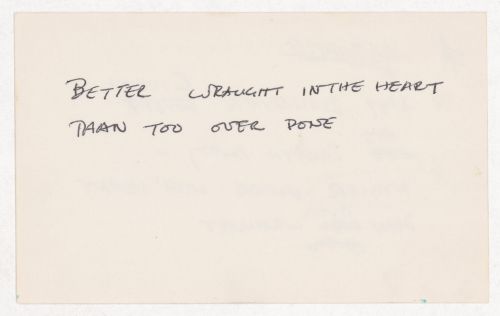 BETTER WRAUGHT IN THE HEART
THAN TOO OVER DONE